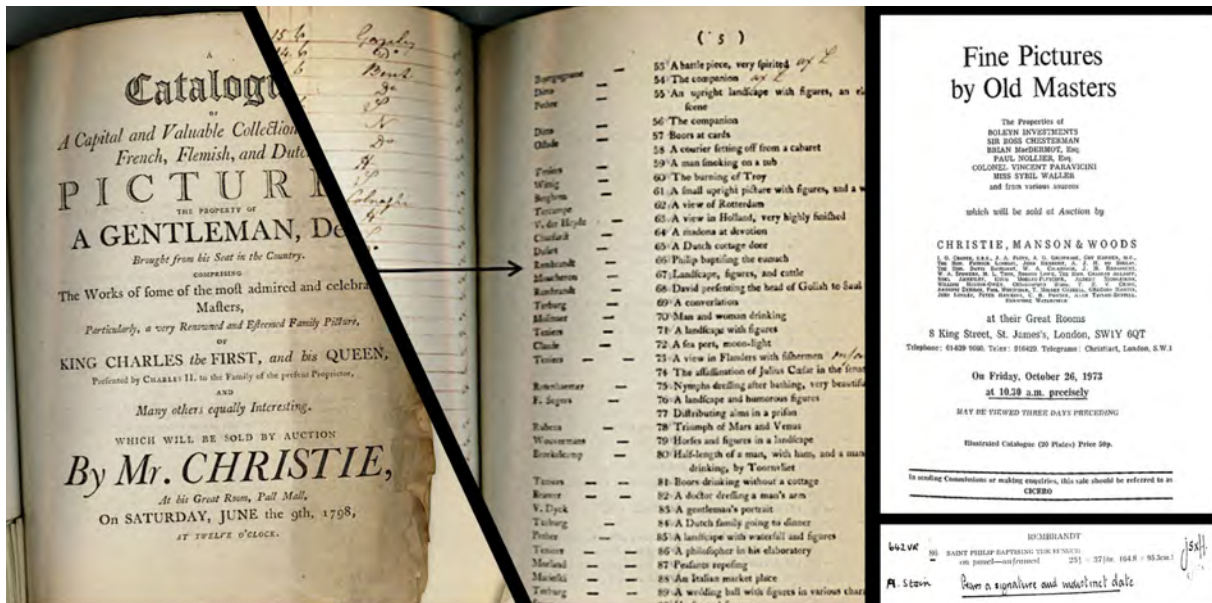 A
Catalog
OF
A Capital and Valuable Collection
French, Flemish, and Dutc
PICTUR
THE PROPERTY OF
A GENTLEMAN, De
Brought from his Seat in the Country.
COMPRISING
The Works of some of the moſt admired and celebra
Maſters,
Particularly, a very Renowned and Eſteemed Family Picture,
OF
KING CHARLES the FIRST, and his QUEEN,
Preſented by CHARLES II. to the Family of the preſent Proprietor,
AND
Many others equally Intereſting.
WHICH WILL BE SOLD BY AUCTION
By Mr. CHRISTIE,
At his Great Room, Pall Mall,
On SATURDAY, JUNE the 9th, 1798,
AT TWELVE O'CLOCK.
( 5 )
53 A battle piece, very ſpirited
Ditto — 54 The companion
55 An upright landſcape with figures, an el
ſcene
56 The companion
Ditto — 57 Boors at cards
58 A courier ſetting off from a cabaret
Teniers — 59 A man ſmoking on a tub
60 The burning of Troy
Berghem — 61 A ſmall upright picture with figures, and a w
62 A view of Rotterdam
V. der Heyde — 63 A view in Holland, very highly finiſhed
64 A madona at devotion
65 A Dutch cottage door
Rembrandt — 66 Philip baptiſing the eunuch
Moucheron — 67 Landſcape, figures, and cattle
Rembrandt — 68 David preſenting the head of Goliah to Saul
Terburg — 69 A converſation
Molinaer — 70 Man and woman drinking
Teniers — 71 A landſcape with figures
Claude — 72 A ſea port, moon-light
Teniers — — 73 A view in Flanders with fiſhermen
74 The aſſaſſination of Julius Cæſar in the ſenat
Rottenhamer — 75 Nymphs dreſſing after bathing, very beautiful
F. Segers — 76 A landſcape and humorous figures
77 Diſtributing alms in a priſon
Rubens — 78 Triumph of Mars and Venus
Wouvermans — 79 Horſes and figures in a landſcape
80 Half-length of a man, with ham, and a man
drinking, by Tournvliet
Teniers — — 81 Boors drinking without a cottage
Brawer — — 82 A doctor dreſſing a man's arm
V. Dyck — 83 A gentleman's portrait
Terburg — 84 A Dutch family going to dinner
Pether — 85 A landſcape with waterfall and figures
Teniers — — 86 A philoſopher in his elaboratory
Morland — — 87 Peaſants repoſing
88 An Italian market place
Terburg — — 89 A wedding ball with figures in various chara
Fine Pictures
by Old Masters
The Properties of
BOLEYN INVESTMENTS
SIR ROSS CHESTERMAN
BRIAN MacDERMOT, Esq.
PAUL NOLLIER, Esq.
COLONEL VINCENT PARAVICINI
MISS SYBIL WALLER
and from various sources
which will be sold at Auction by
CHRISTIE, MANSON & WOODS
at their Great Rooms
8 King Street, St. James's, London, SW1Y 6QT
Telephone: 01-839 9060. Telex: 916429. Telegrams: Christiart, London, S.W.1
On Friday, October 26, 1973
at 10.30 a.m. precisely
MAY BE VIEWED THREE DAYS PRECEDING
Illustrated Catalogue (20 Plates) Price 50p.
In sending Commissions or making enquiries, this sale should be referred to as
CICERO
REMBRANDT
642VR 86 SAINT PHILIP BAPTISING THE EUNUCH
on panel—unframed
A. Stein Bears a signature and indistinct date